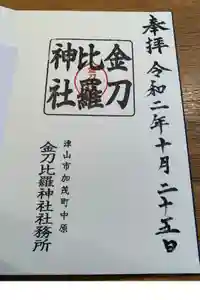 奉拝 令和二年十月二十五日
金刀
比羅
神社
津山市加茂町中原
金刀比羅神社社務所